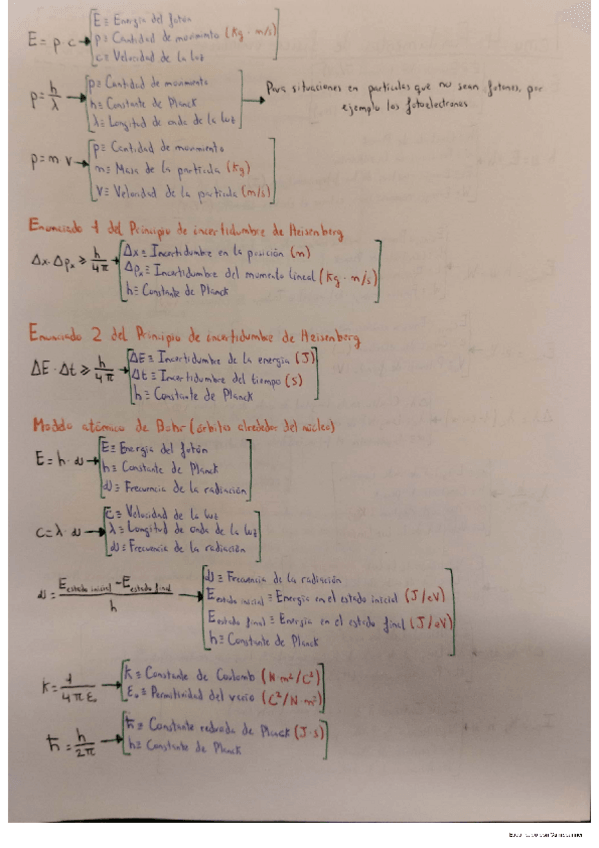 E = p · c → E ≡ Energía del fotón
p ≡ Cantidad de movimiento (Kg · m/s)
c ≡ Velocidad de la luz
p = h/λ → p ≡ Cantidad de movimiento
h ≡ Constante de Planck
λ ≡ Longitud de onda de la luz
→ Para situaciones en partículas que no sean fotones, por
ejemplo los fotoelectrones
p = m v → p ≡ Cantidad de movimiento
m ≡ Masa de la partícula (Kg)
V ≡ Velocidad de la partícula (m/s)
Enunciado 1 del Principio de incertidumbre de Heisenberg
Δx · Δpx ≥ h/4π → Δx ≡ Incertidumbre en la posición (m)
Δpx ≡ Incertidumbre del momento lineal (Kg · m/s)
h ≡ Constante de Planck
Enunciado 2 del Principio de incertidumbre de Heisenberg
ΔE · Δt ≥ h/4π → ΔE ≡ Incertidumbre de la energía (J)
Δt ≡ Incertidumbre del tiempo (s)
h ≡ Constante de Planck
Modelo atómico de Bohr (órbitas alrededor del núcleo)
E = h · ν → E ≡ Energía del fotón
h ≡ Constante de Planck
ν ≡ Frecuencia de la radiación
c = λ · ν → c ≡ Velocidad de la luz
λ ≡ Longitud de onda de la luz
ν ≡ Frecuencia de la radiación
ν = (E estado inicial − E estado final)/h → ν ≡ Frecuencia de la radiación
E estado inicial ≡ Energía en el estado inicial (J/eV)
E estado final ≡ Energía en el estado final (J/eV)
h ≡ Constante de Planck
K = 1/4πε₀ → K ≡ Constante de Coulomb (N·m²/C²)
ε₀ ≡ Permitividad del vacío (C²/N·m²)
ħ = h/2π → ħ ≡ Constante reducida de Planck (J·s)
h ≡ Constante de Planck